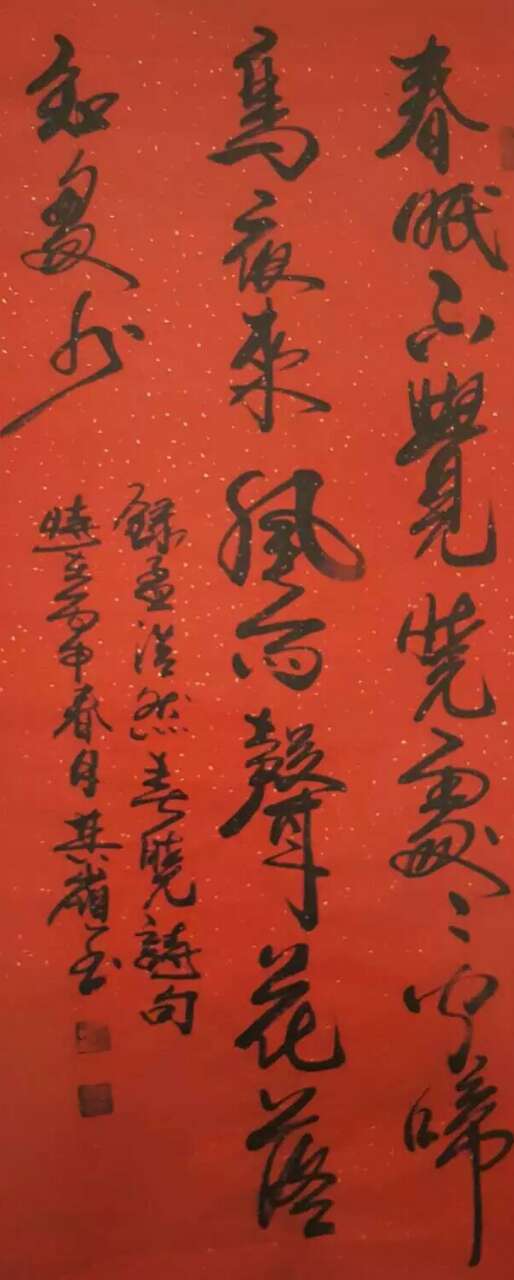 春眠不覺曉處〻聞啼
鳥夜來風雨聲花落
知多少
錄孟浩然春曉詩句
丙申春月其嶺书